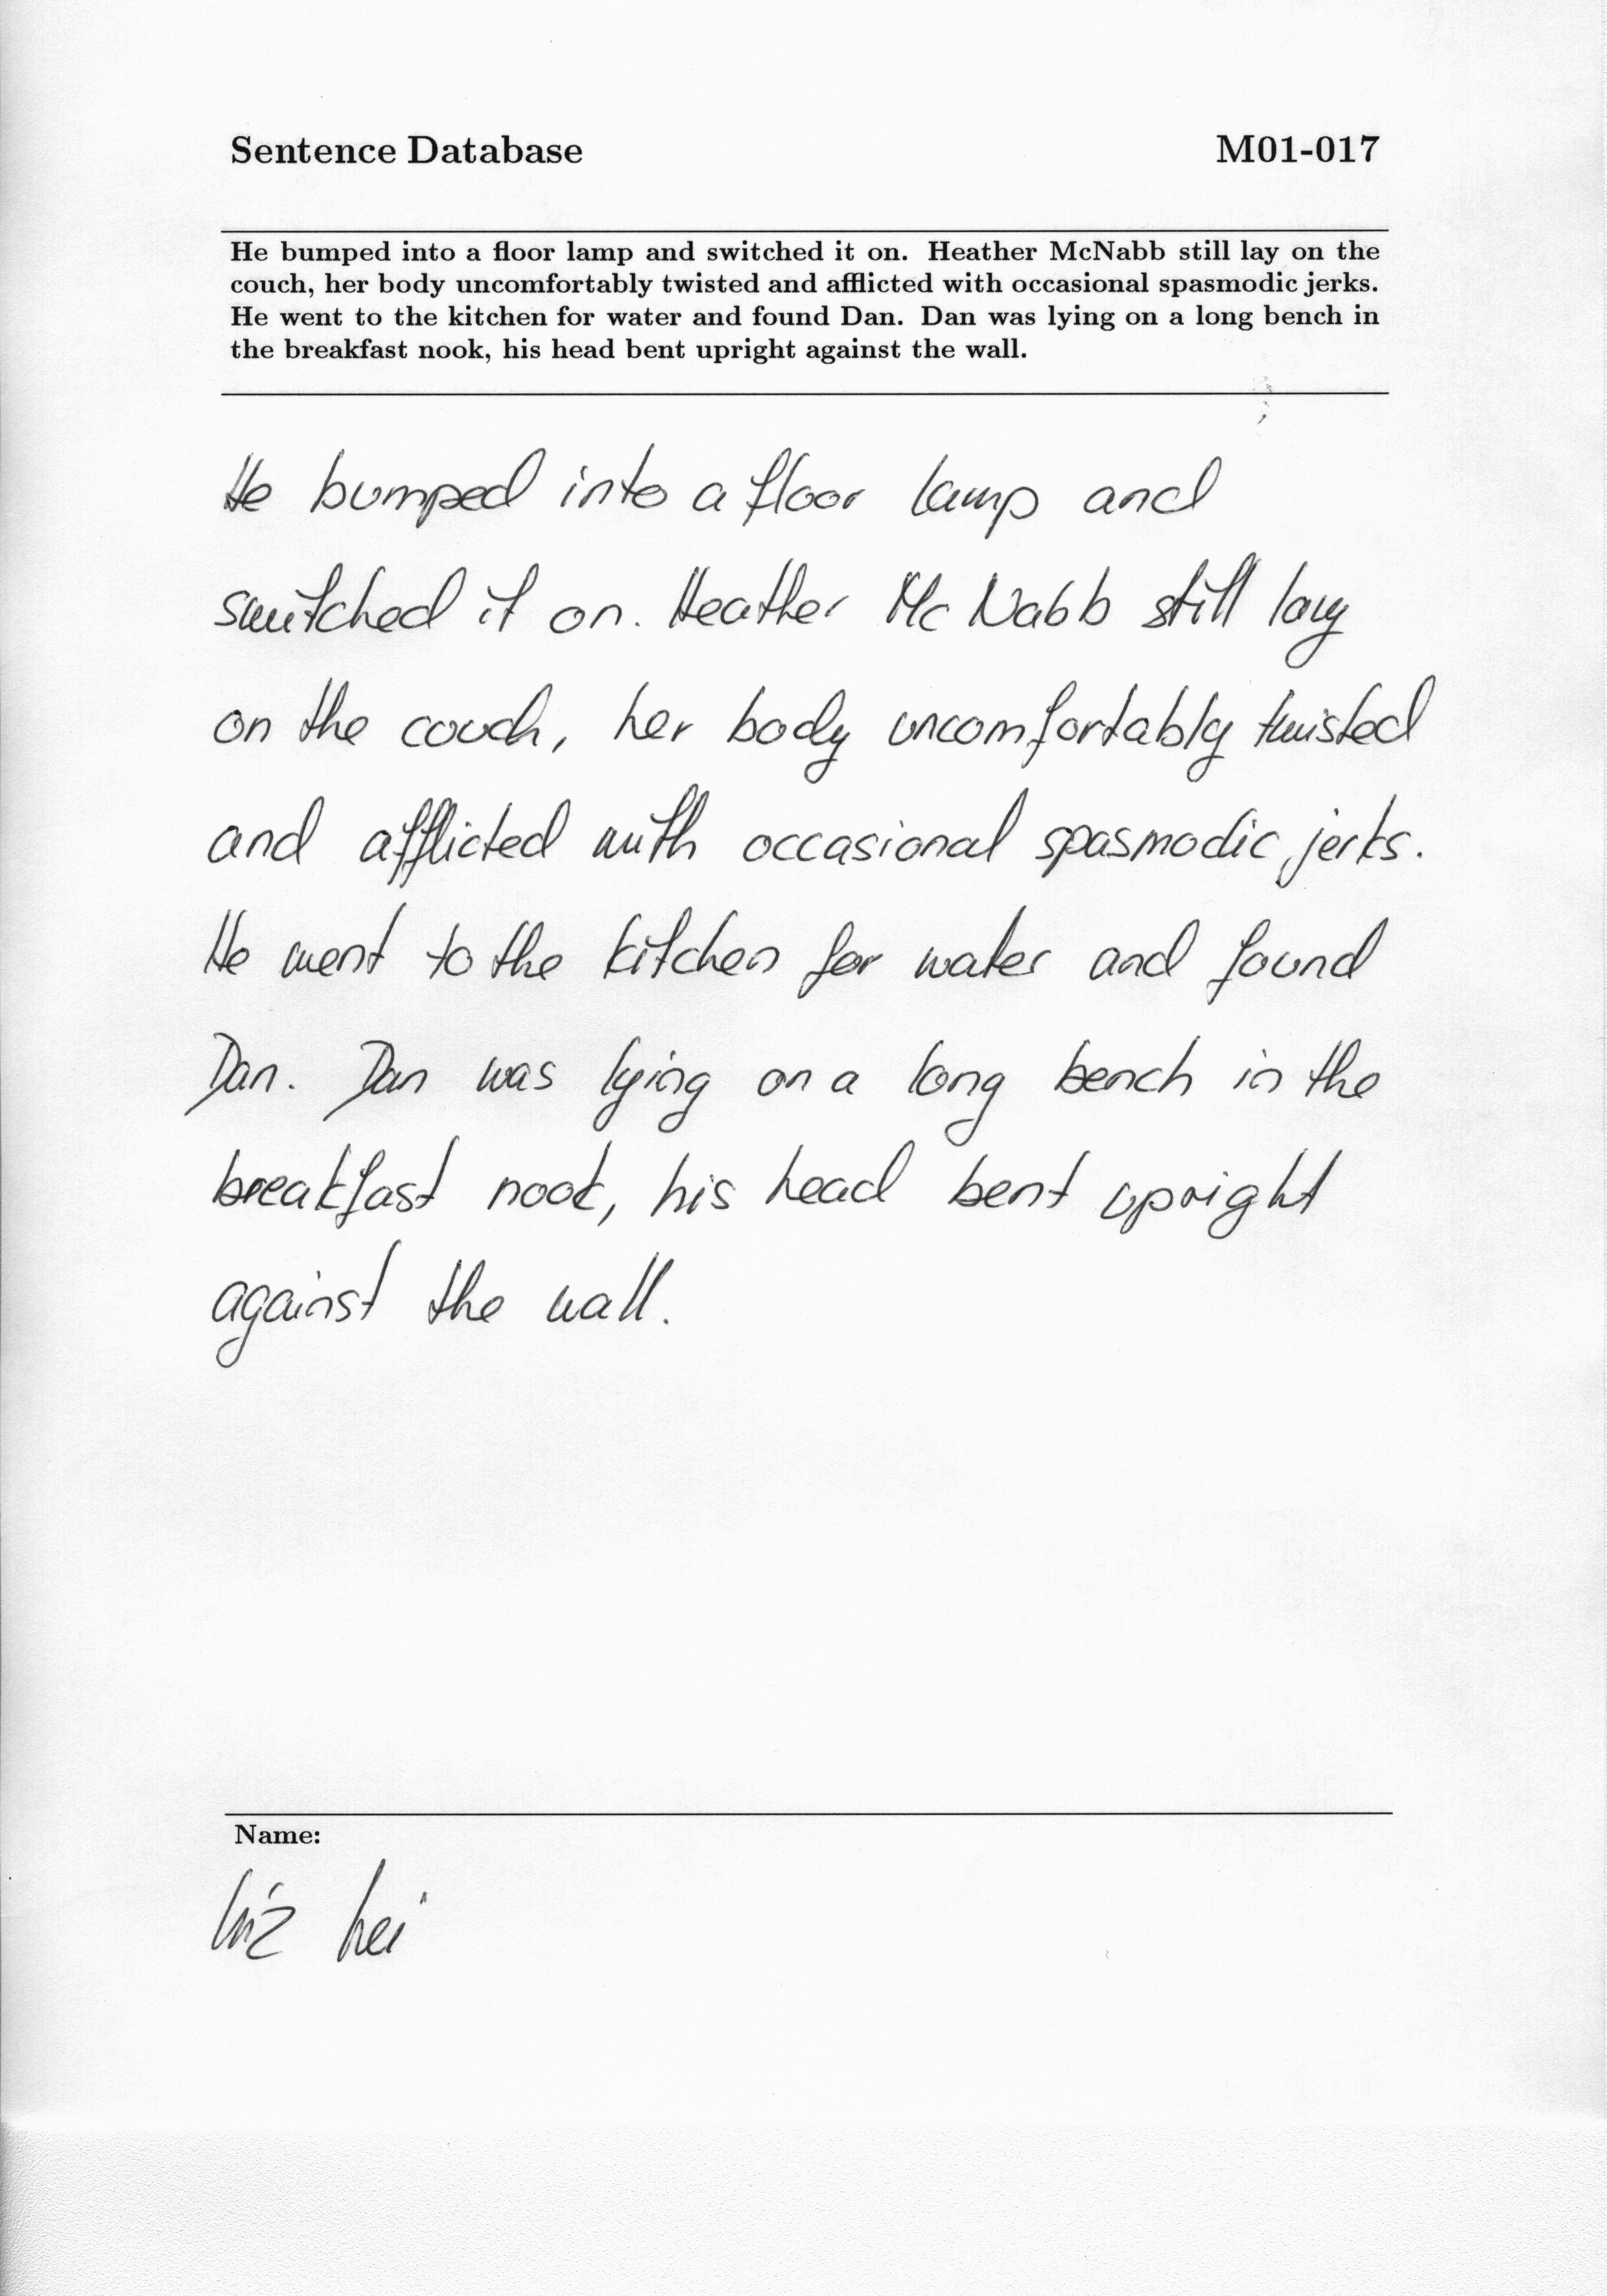 Sentence Database M01-017
He bumped into a floor lamp and switched it on. Heather McNabb still lay on the
couch, her body uncomfortably twisted and afflicted with occasional spasmodic jerks.
He went to the kitchen for water and found Dan. Dan was lying on a long bench in
the breakfast nook, his head bent upright against the wall.
He bumped into a floor lamp and
switched it on. Heather Mc Nabb still lay
on the couch, her body uncomfortably twisted
and afflicted with occasional spasmodic jerks.
He went to the kitchen for water and found
Dan. Dan was lying on a long bench in the
breakfast nook, his head bent upright
against the wall.
Name: